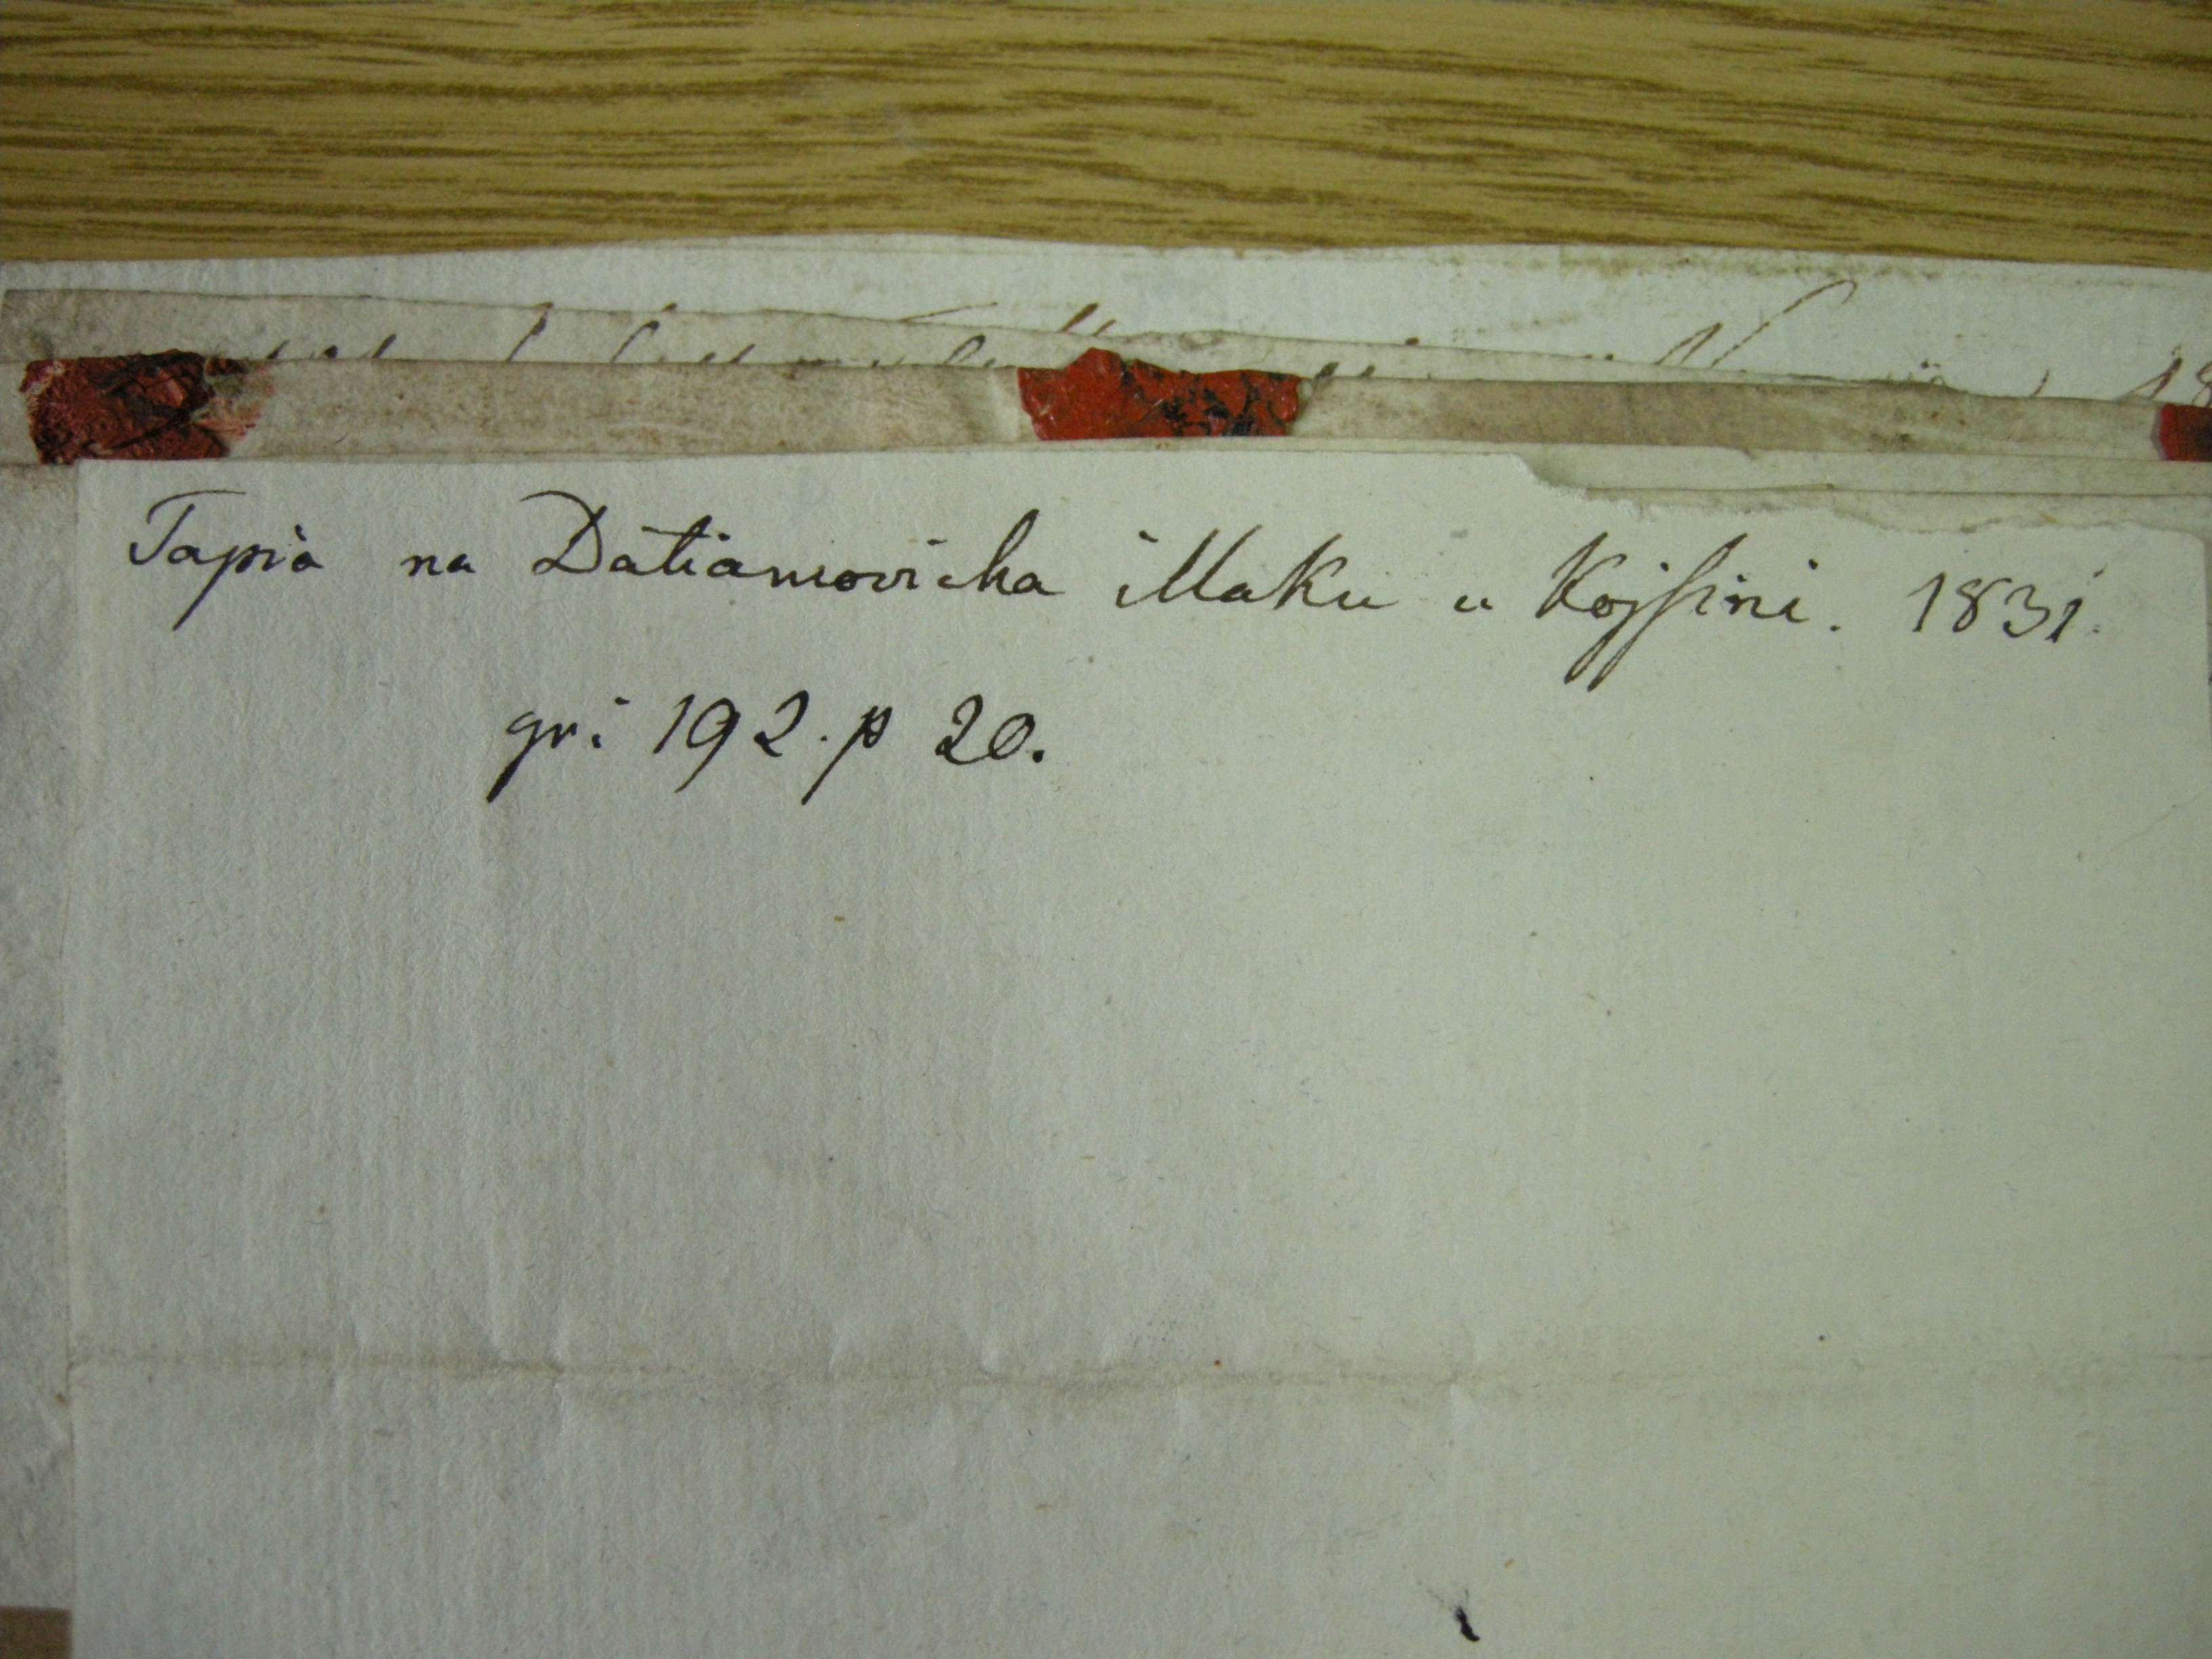 Tapia na Datiamovicha i Maku u Kojsini. 1831.
gr: 192. p 20.